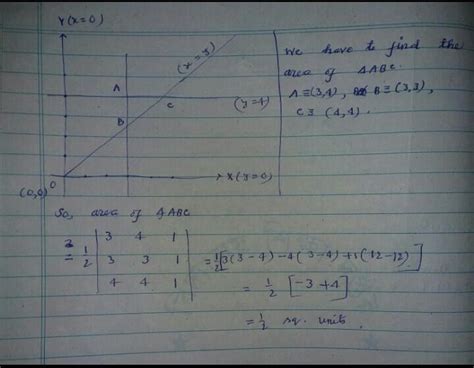 Y(x=0)
(x=y)
A
C
(y=4)
B
X(y=0)
(0,0)
O
We have to find the
area of ΔABC.
A≡(3,4), B≡(3,3),
C≡(4,4).
So, area of ΔABC
= 1/2 | 3 4 1 |
| 3 3 1 |
| 4 4 1 |
= 1/2 [3(3-4)-4(3-4)+1(12-12)]
= 1/2 [-3+4]
= 1/2 sq. units.